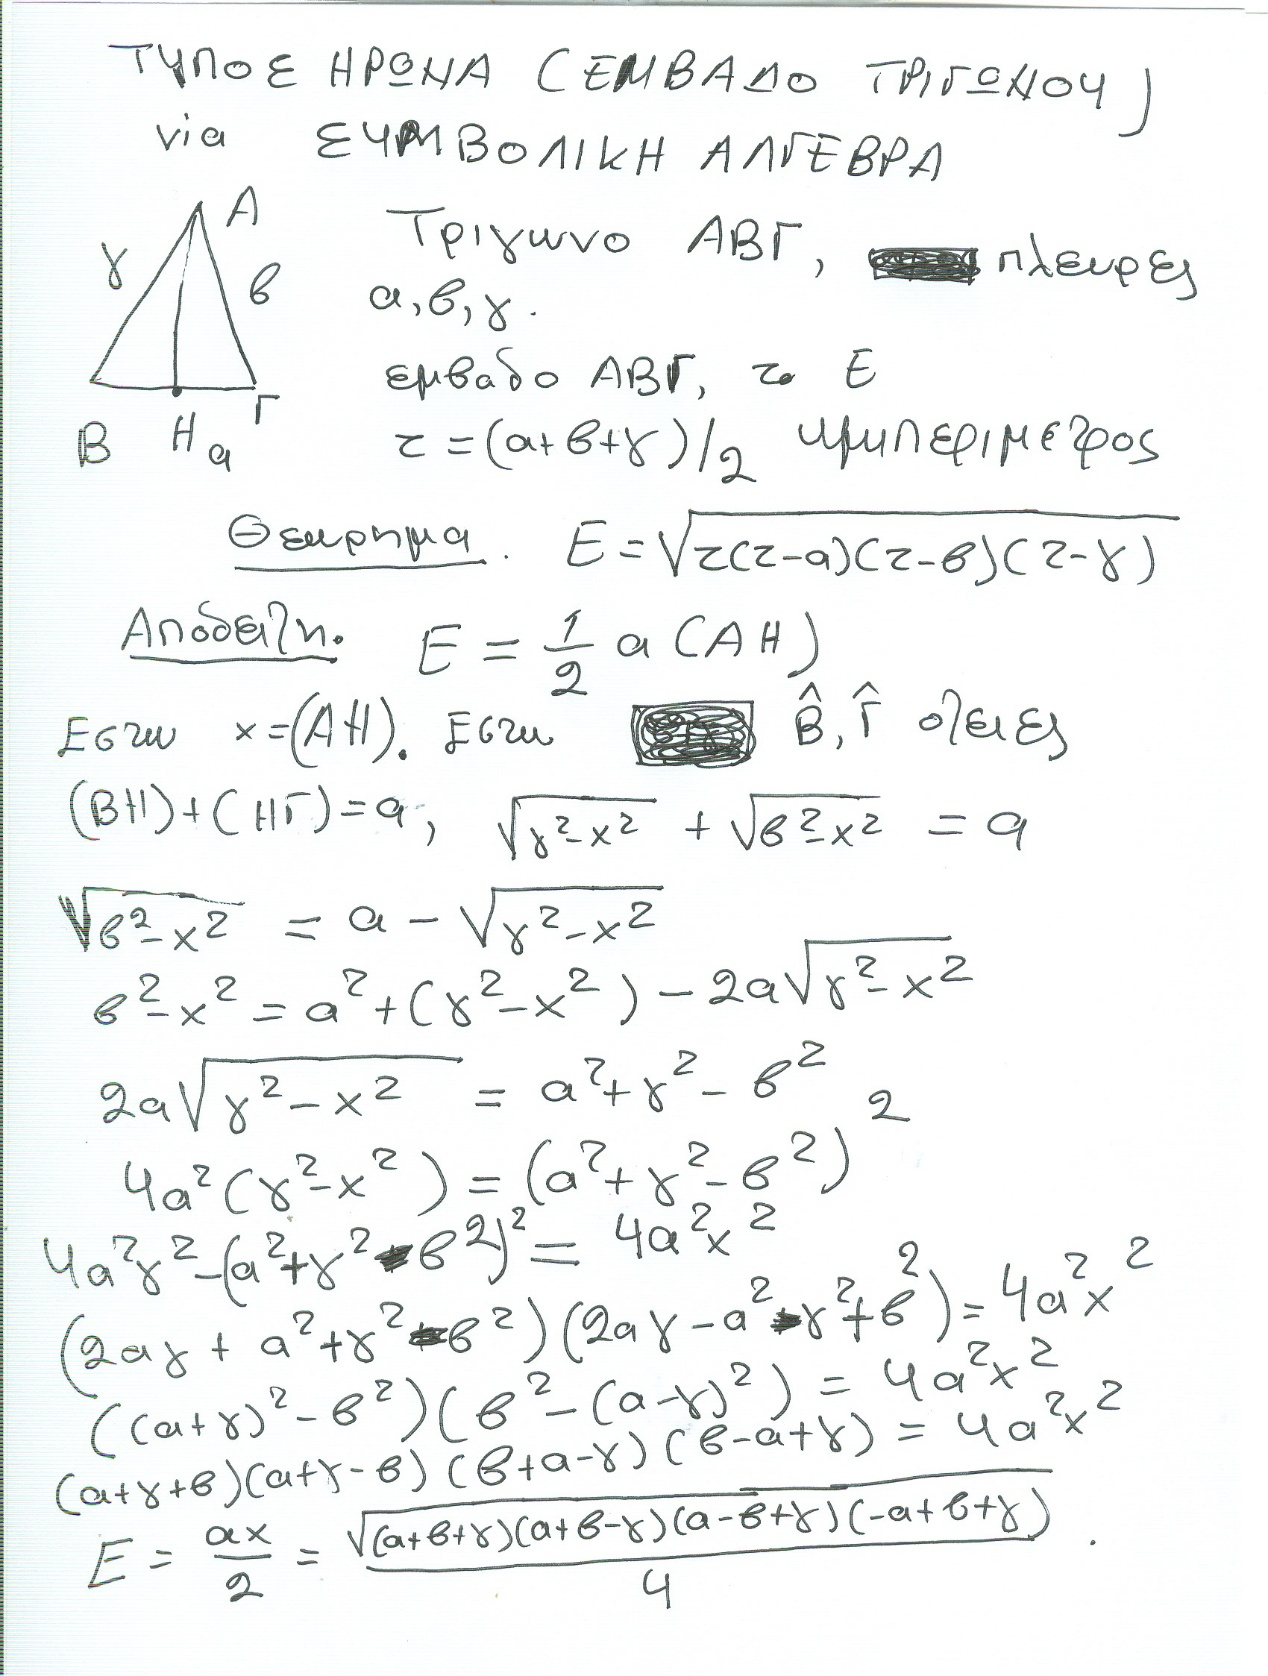 ΤΥΠΟΣ ΗΡΩΝΑ (ΕΜΒΑΔΟ ΤΡΙΓΩΝΟΥ)
via ΣΥΜΒΟΛΙΚΗ ΑΛΓΕΒΡΑ
Α
γ β
Β Η α Γ
Τριγωνο ΑΒΓ, πλευρες
α, β, γ.
εμβαδο ΑΒΓ, το Ε
τ = (α+β+γ)/2 ημιπεριμετρος
Θεωρημα. Ε = √τ(τ-α)(τ-β)(τ-γ)
Αποδειξη. Ε = 1/2 α (ΑΗ)
Εστω x = (ΑΗ). Εστω B̂, Γ̂ οξειες
(ΒΗ)+(ΗΓ)=α, √γ²-x² + √β²-x² = α
√β²-x² = α - √γ²-x²
β²-x² = α²+(γ²-x²) - 2α√γ²-x²
2α√γ²-x² = α²+γ²-β²
4α²(γ²-x²) = (α²+γ²-β²)²
4α²γ²-(α²+γ²-β²)² = 4α²x²
(2αγ + α²+γ²-β²)(2αγ-α²-γ²+β²) = 4α²x²
((α+γ)²-β²)(β²-(α-γ)²) = 4α²x²
(α+γ+β)(α+γ-β)(β+α-γ)(β-α+γ) = 4α²x²
Ε = αx/2 = √(α+β+γ)(α+β-γ)(α-β+γ)(-α+β+γ)/4 .